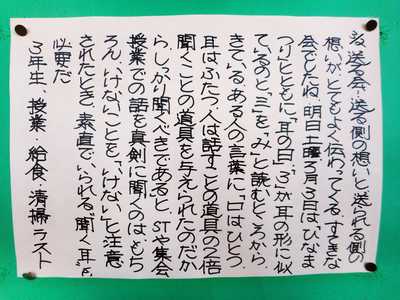 送る会…送る側の想いと送られる側の
想いが、とてもよく伝わってくる、すてきな
会でしたね。明日土曜3月3日は「ひなま
つり」とともに「耳の日」。「3」が耳の形に似
ているのと、「三」を「みみ」と読むところから、
きている。ある人の言葉に「口はひとつ、
耳はふたつ、人は話すことの道具の2倍
聞くことの道具を与えられたのだか
ら、しっかり聞くべきである」と。STや集会
授業での話を真剣に聞くのはもち
ろん、いけないことを、「いけない」と注意
されたとき、素直でいられる「聞く耳」も
必要だ
3年生、授業、給食、清掃ラスト